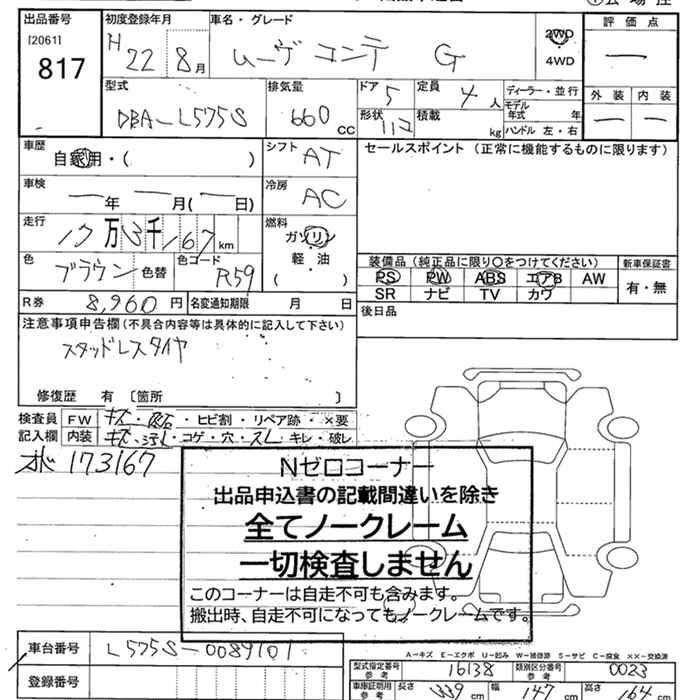 出品番号 初度登録年月 車名・グレード 評価点
[2061] H 22 8月 ムーヴ コンテ G 2WD
817 ・ 4WD
型式 排気量 ドア 5 定員 4人 ディーラー・並行 外装 内装
DBA-L575S 660 CC 形状 積載 kg モデル年式 年
ハンドル 左・右
車歴 自家用・( ) シフト AT セールスポイント (正常に機能するものに限ります)
車検 ー年 ー月(ー日) 冷房 AC
走行 17万3千167km 燃料 ガソリン
色 ブラウン 色替 色コード R59 軽・油
( ・ )
装備品(純正品に限り○をつけてください) 新車保証書
PS PW ABS エアB AW 有・無
SR ナビ TV カワ
R券 8,960円 名変通知期限 月 日 後日品
注意事項申告欄(不具合内容等は具体的に記入して下さい)
スタッドレスタイヤ
修復歴 有 〔箇所 〕
検査員 FW キズ・飛石・ヒビ割・リペア跡・×要
記入欄 内装 ・コゲ・穴・スレ・キレ・破レ
173167
Nゼロコーナー
出品申込書の記載間違いを除き
全てノークレーム
一切検査しません
このコーナーは自走不可も含みます。
搬出時、自走不可になってもノークレームです。
車台番号 L575S-0089101
登録番号
A－キズ E－エクボ U－凹み W－補修跡 S－サビ C－腐食 ××－交換済
型式指定番号 参考 16138 類別区分番号 参考 0023
車庫証明用 参考 長さ 339cm 幅 147cm 高さ 164cm